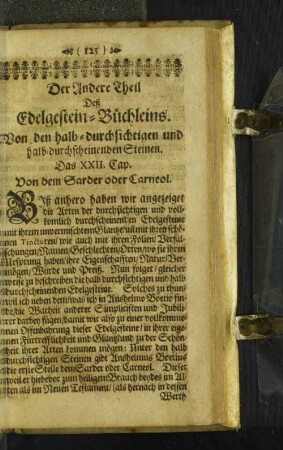 ( 125 )
Der Andere Theil
Deß
Edelgestein-Büchleins.
Von den halb-durchsichtigen und
halb-durchscheinenden Steinen.
Das XXII. Cap.
Von dem Sarder oder Carneol.
Biß anhero haben wir angezeiget
die Arten der durchsichtigen und voll-
kömlich durchscheinenden Edelgesteine
mit ihrem unvermischtem Glantze/und mit ihren schö-
nen Tincturen/ wie auch mit ihren Folien/Verfäl-
schungen/Namen/Geschlechten/Orten/wo sie ihren
Ursprung haben/ihre Eigenschafften/Natur/Ver-
mögen/Würde und Preiß. Nun folget / gleicher
weise zu beschreiben die halb durchsichtigen und halb
durchscheinenden Edelgesteine. Solches zu thun/
wil ich neben dem/was ich in Anshelmo Boetio fin-
de/die Warheit anderer Simplicisten und Jubili-
rer darbey fügen/damit wir also zu einer vollkomme-
nen Offenbahrung dieser Edelgesteine / in ihrer eige-
nen Fürtrefflichkeit und Glantz/und zu der Schön-
heit ihrer Arten kommen mögen: Unter den halb
durchsichtigen Steinen gibt Anshelmus Boetius
die erste Stelle dem Sarder oder Carneol. Dieser
weil er hiebevor zum heiligem Brauch beydes im Al-
ten als im Neuen Testament/ (als hernach in dessen
Werth